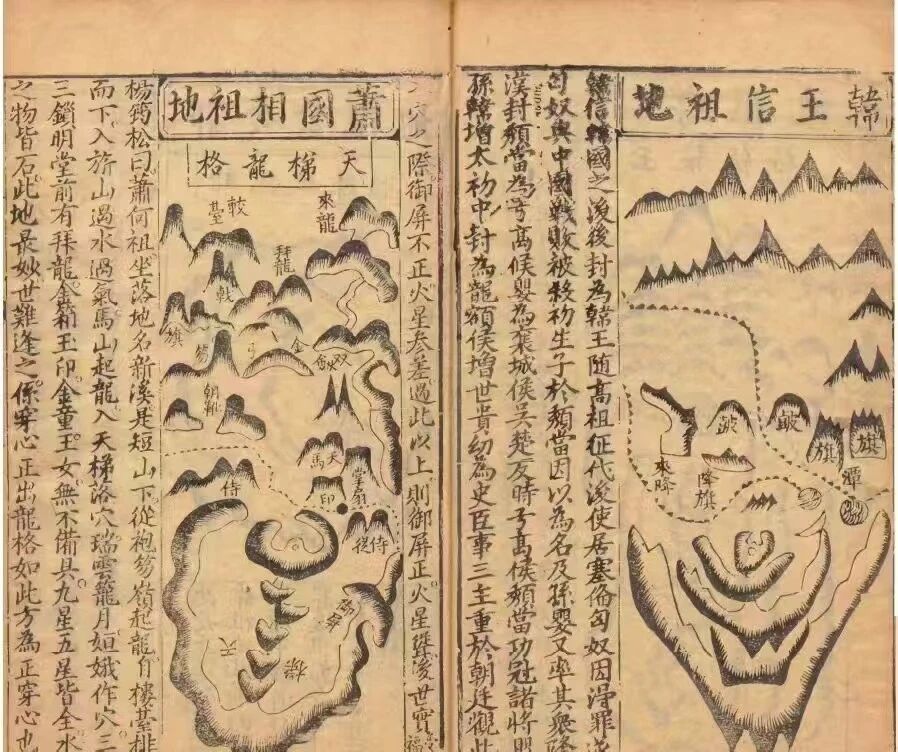 韓王信祖地
旗
旗
皷
皷
潭
降旗
來降
韓信韓國之後後封為韓王随高祖征代後使居塞倫匈奴因滑罪遂
匈奴與中國戰敗被殺初生子於頹當因以為名及孫嬰又率其衆降
漢封頹當為弓高候嬰為襄城侯吳楚反時子高侯頹當功冠諸將嬰
孫韓增太初中封為龍頟侯增世貴幼為史臣事三主重於朝廷觀此
穴之際御屏不正火星參差過此以上則御屏正火星聳後世實
蕭國相祖地
天梯龍格
來龍
拜龍
戟
旗
笏
弓
金
朝靴
天馬
印
掌扇
侍
侍從
天
梯
楊筠松曰蕭何祖坐落地名新溪是短山下從袍笏嶺起龍自樓臺排
而下入旂山過水過氣馬山起龍入天梯落穴瑞雲籠月姮娥作穴三
三鎖明堂前有拜龍金箱玉印金童玉女無不備具九星五星皆全水
之物皆石此地最妙世難逢之係穿心正出龍格如此方為正穿心也